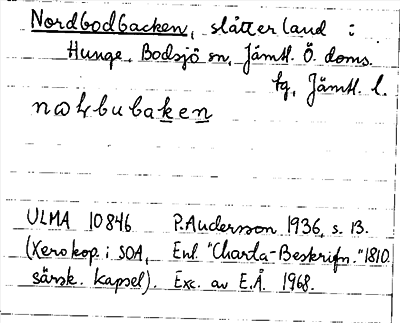 Nordbodbacken, slåtterland i
Hunge, Bodsjö sn, Jämtl. Ö. doms.
tg, Jämtl. l.
ULMA 10846 P. Andersson 1936, s. 13.
(Xerokop. i SOA, Enl. "Charta-Beskrifn." 1810.
särsk. kapsel). Exc. av E.Å. 1968.